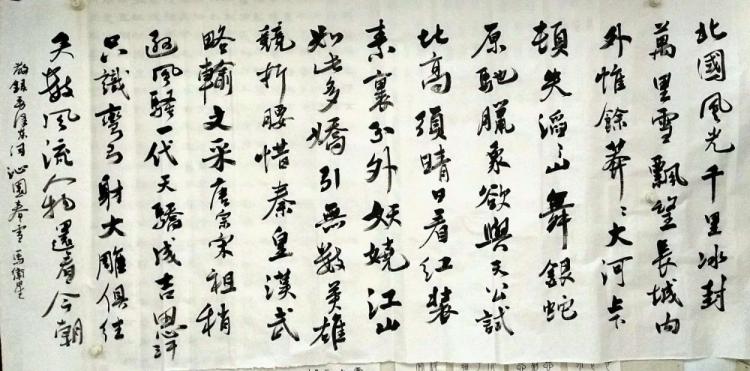 北國風光千里冰封
萬里雪飄望長城内
外惟餘莽〻大河上下
頓失滔〻山舞銀蛇
原馳臘象欲與天公試
比高須晴日看红裝
素裹分外妖嬈江山
如此多嬌引無數英雄
競折腰惜秦皇漢武
略輸文采唐宗宋祖稍
遜風騷一代天驕成吉思汗
只識彎弓射大雕俱往
矣數風流人物還看今朝
敬録毛澤东词沁園春雪